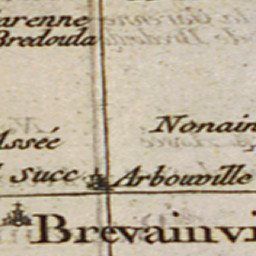 arenne
Bredouda
Nonain
Asseé
Succ Arbouville
Brevainvi